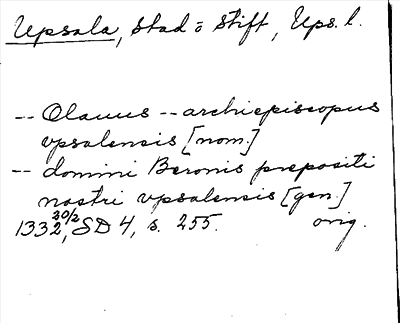 Upsala, stad o stift, Ups. l.
-- Olauus -- archiepiscopus
vpsalensis [nom.]
-- domini Beronis prepositi
nostri vpsalensis [gen.]
1332 30/2, SD 4, s. 255. orig.